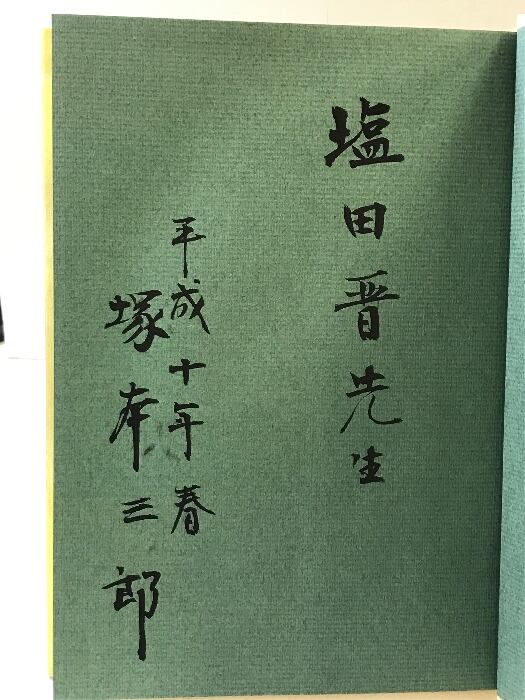 塩田晋先生
平成十年春
塚本三郎